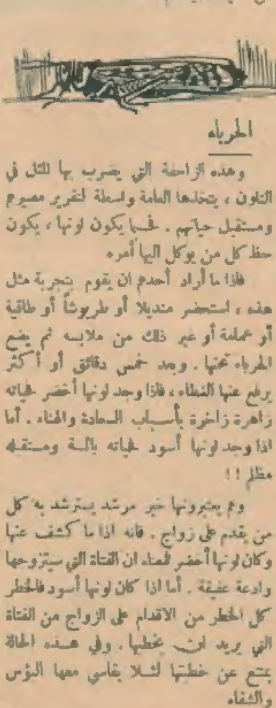 الحرباء
وهذه الزاحفة التي يضرب بها المثل في
التلون ، يتخذها العامة واسطة لتقرير مصيرهم
ومستقبل حياتهم . فحسبما يكون لونها ، يكون
حظ كل من يوكل اليها أمره
فاذا ما أراد أحدهم ان يقوم بتجربة مثل
هذه ، استحضر منديلا أو طربوشاً أو طاقية
أو عمامة أو غير ذلك من ملابسه ثم يضع
الحرباء تحتها . وبعد خمس دقائق أو أكثر
يرفع عنها الغطاء ، فاذا وجد لونها أخضر فحياته
زاهرة زاخرة بأسباب السعادة والهناء . أما
اذا وجد لونها أسود فحياته بائسة ومستقبله
مظلم ! !
وهم يعتبرونها خير مرشد يسترشد به كل
من يقدم على زواج . فانه اذا ما كشف عنها
وكان لونها أخضر فمعناه ان الفتاة التي سيتزوجها
وادعة عفيفة . أما اذا كان لونها أسود فالخطر
كل الخطر من الاقدام على الزواج من الفتاة
التي يريد ان يخطبها . وفي هذه الحالة
يمتنع عن خطبتها لئلا يقاسي معها البؤس
والشقاء